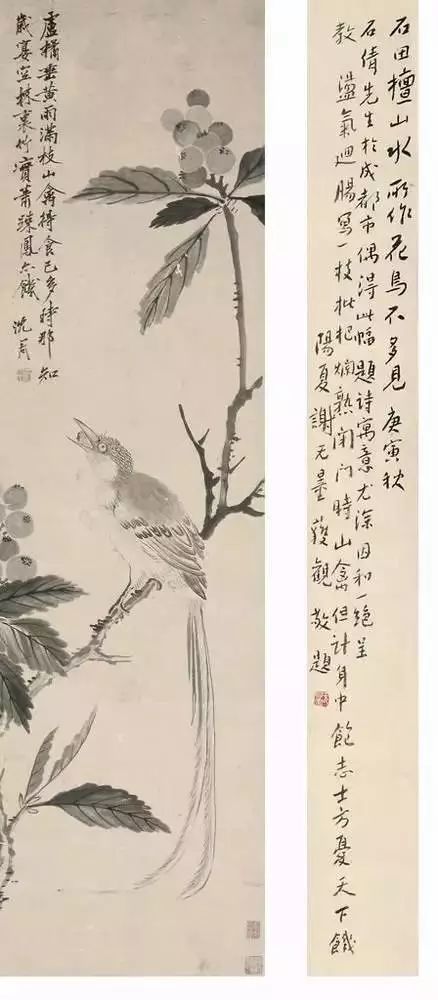 盧橘垂黃雨滿枝山禽得食已多時那知
歲宴空林裏竹實蕭疎鳳亦饑 沈周
石田擅山水所作花鳥不多見 庚寅秋
石倩先生於成都市偶得此幅題詩寓意尤深因和一絕呈
教 盪氣迴腸寫一枝枇杷爛熟閉門時山禽但計身中飽志士方憂天下饑
陽夏謝无量獲觀敬題